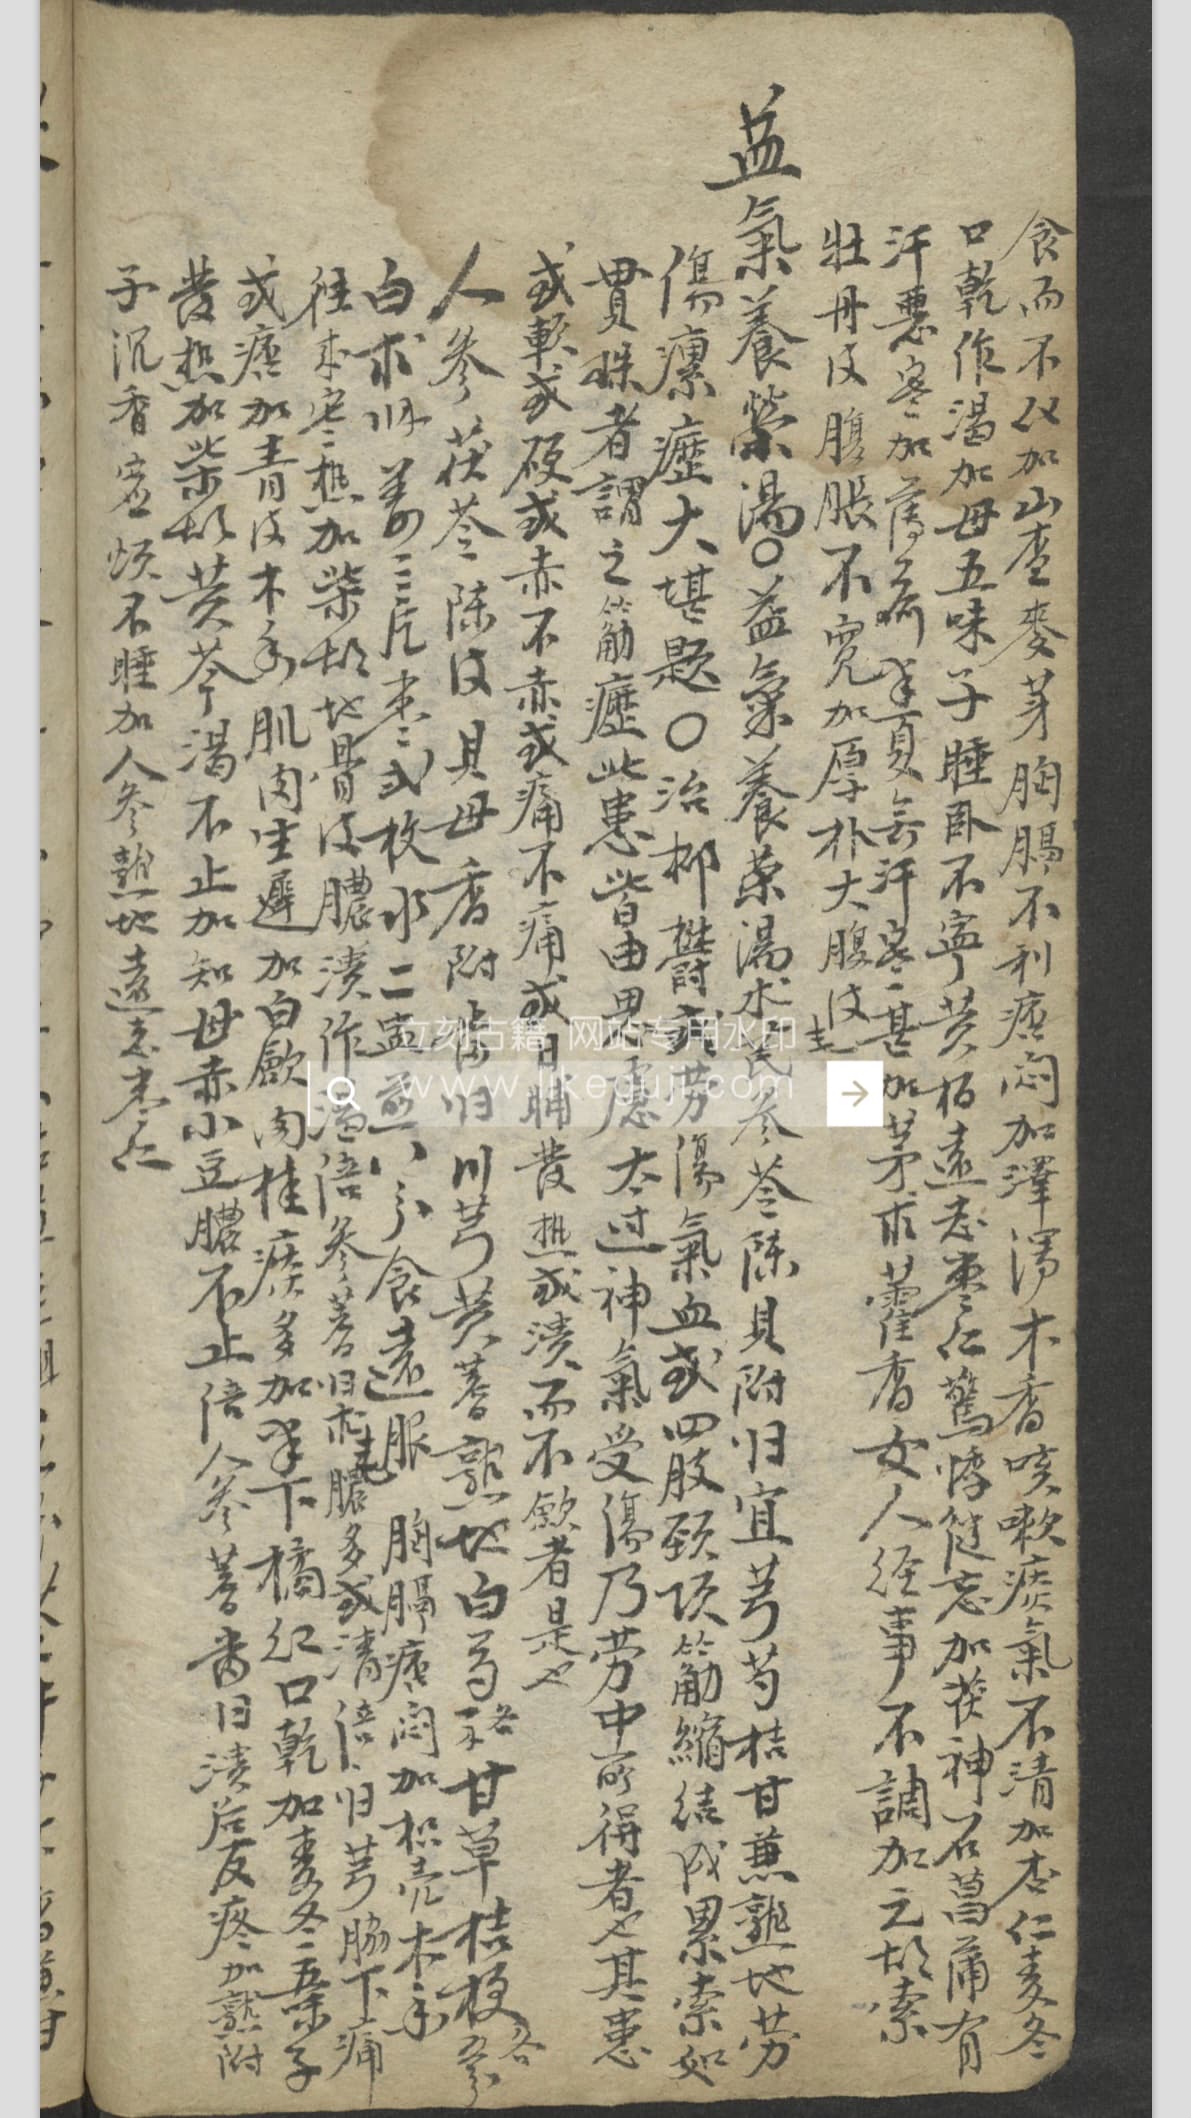 食而不化加山查麥芽胸膈不利痞悶加澤瀉木香咳嗽痰氣不清加杏仁麦冬
口乾作渴加母五味子睡卧不寧黄栢遠志枣仁驚悸健忘加茯神石菖蒲有
汗惡寒加薄荷半夏无汗寒甚加茅朮藿香女人经事不調加元胡索
牡丹皮腹脹不寛加厚朴大腹皮
益氣養榮湯〇益氣養荣湯朮芪参苓陈貝附归宜芎芍桔甘兼熟地劳
傷瘰癧大堪题〇治抑鬱或劳傷氣血或四肢頚项筋縮結成累索如
貫珠者謂之筋癧此患皆由思慮太过神氣受傷乃劳中所得者也其患
或軟或硬或赤不赤或痛不痛或日晡發热或潰而不歛者是也
人参茯苓陈皮貝母香附当归川芎黄蓍熟地白芍各 甘草桔梗各
白朮 姜三片枣二枚水二盅煎八分食遠服 胸膈痞悶加枳壳木香
往来寒热加柴胡地骨皮膿潰作 倍参蓍归朮膿多或清倍归芎脇下痛
或痞加青皮木香肌肉生遲加白歛肉桂痰多加半下橘红口乾加麦冬五味子
發热加柴胡黄芩渴不止加知母赤小豆膿不止倍人参蓍当归潰后反疼加熟附
子沉香虚烦不睡加人参熟地遠志枣仁
立刻古籍 网站专用水印
www.likeguji.com